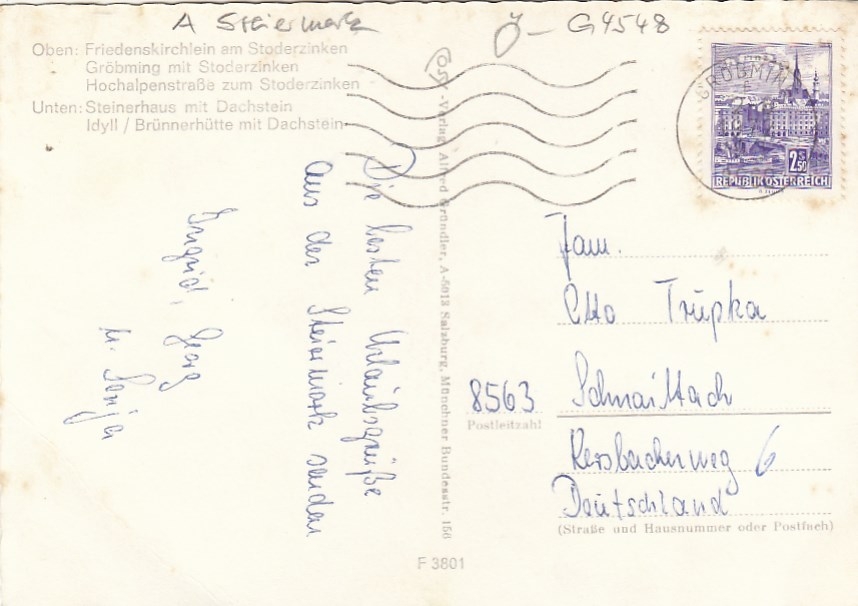 A Steiermark
Ö - G4548
Oben: Friedenskirchlein am Stoderzinken
Gröbming mit Stoderzinken
Hochalpenstraße zum Stoderzinken
Unten: Steinerhaus mit Dachstein
Idyll / Brünnerhütte mit Dachstein
GRÖBMING
2.50
REPUBLIK ÖSTERREICH
Die besten Urlaubsgrüße
aus der Steiermark senden
Ingrid, Georg
u. Sonja
-Verlag Alfred Gründler, A-5013 Salzburg, Münchner Bundesstr. 156
Fam.
Otto Trupka
8563 Schnaittach
Postleitzahl
Kersbacherweg 6
Deutschland
(Straße und Hausnummer oder Postfach)
F 3801